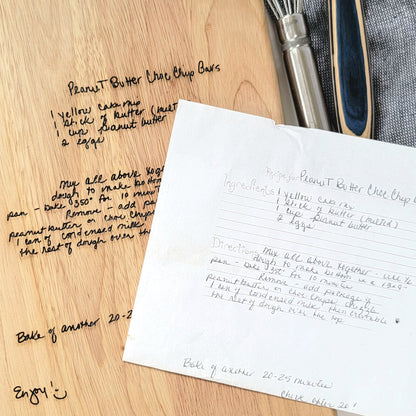 Peanut Butter Choc Chip Bars
1 yellow cake mix
1 stick of butter (melt
1 cup peanut butter
2 eggs
Mix all above toget
dough to make bottom
pan - Bake 350° for 10 minu
Remove - add pa
peanut butter on choc chips
1 can of condensed milk
the rest of dough over th
Bake of another 20-2
Enjoy!
Recipe: Peanut Butter Choc Chip
Ingredients 1 yellow cake mix
1 stick of butter (melted)
1 cup peanut butter
2 eggs
Directions: Mix all above together - use ½
dough to make bottom in a 13x9
pan - Bake 350° for 10 minutes
Remove - add package of
peanut butter on choc chips. drizzle
1 can of condensed milk then crumble
the rest of dough over the top
Bake of another 20-25 minutes
Check after 20!